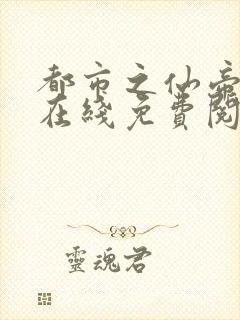 都市之仙帝
在綫免費閱
靈魂君